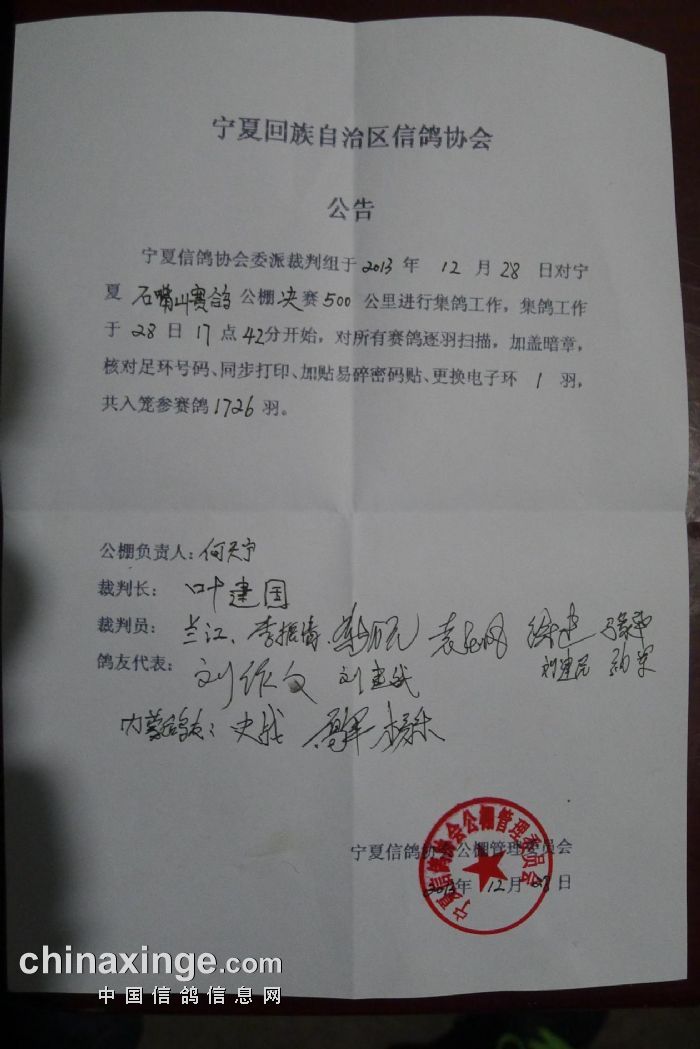 宁夏回族自治区信鸽协会
公告
宁夏信鸽协会委派裁判组于2013年12月28日对宁
夏石嘴山赛鸽公棚决赛500公里进行集鸽工作，集鸽工作
于28日17点42分开始，对所有赛鸽逐羽扫描，加盖暗章，
核对足环号码、同步打印、加贴易碎密码贴、更换电子环1羽，
共入笼参赛鸽1726羽。
公棚负责人：何天宁
裁判长：叶建国
裁判员：兰江、李振清
鸽友代表：刘作文 刘建武 刘建民
内蒙鸽友：史战
宁夏信鸽协会公棚管理委员会
2013年12月28日
宁夏信鸽协会公棚管理委员会
chinaxinge.com
中国信鸽信息网